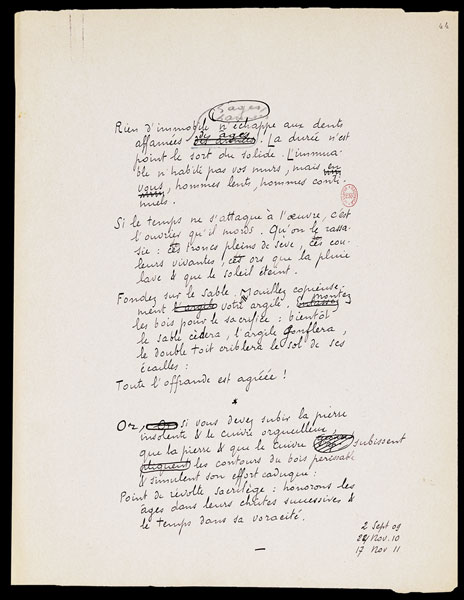 44
Sages
Rien d'immobile n'échappe aux dents
affamées des âges. La durée n'est
point le sort du solide. L'immua-
ble n'habite pas vos murs, mais en
vous, hommes lents, hommes conti-
nuels.
Si le temps ne s'attaque à l'œuvre, c'est
l'ouvrier qu'il mord. Qu'on le rassa-
sie : ces troncs pleins de sève, ces cou-
leurs vivantes, ces ors que la pluie
lave & que le soleil éteint.
Fondez sur le sable. Mouillez copieuse-
ment votre argile. Montez
les bois pour le sacrifice : bientôt
le sable cèdera, l'argile gonflera,
le double toit criblera le sol de ses
écailles :
Toute l'offrande est agréée !
*
Or, si vous devez subir la pierre
insolente & le cuivre orgueilleux,
que la pierre & que le cuivre subissent
les contours du bois périssable
& simulent son effort caduque :
Point de révolte sacrilège : honorons les
âges dans leurs chutes successives &
le temps dans sa voracité.
2 Sept 09
24 Nov. 10
17 Nov 11